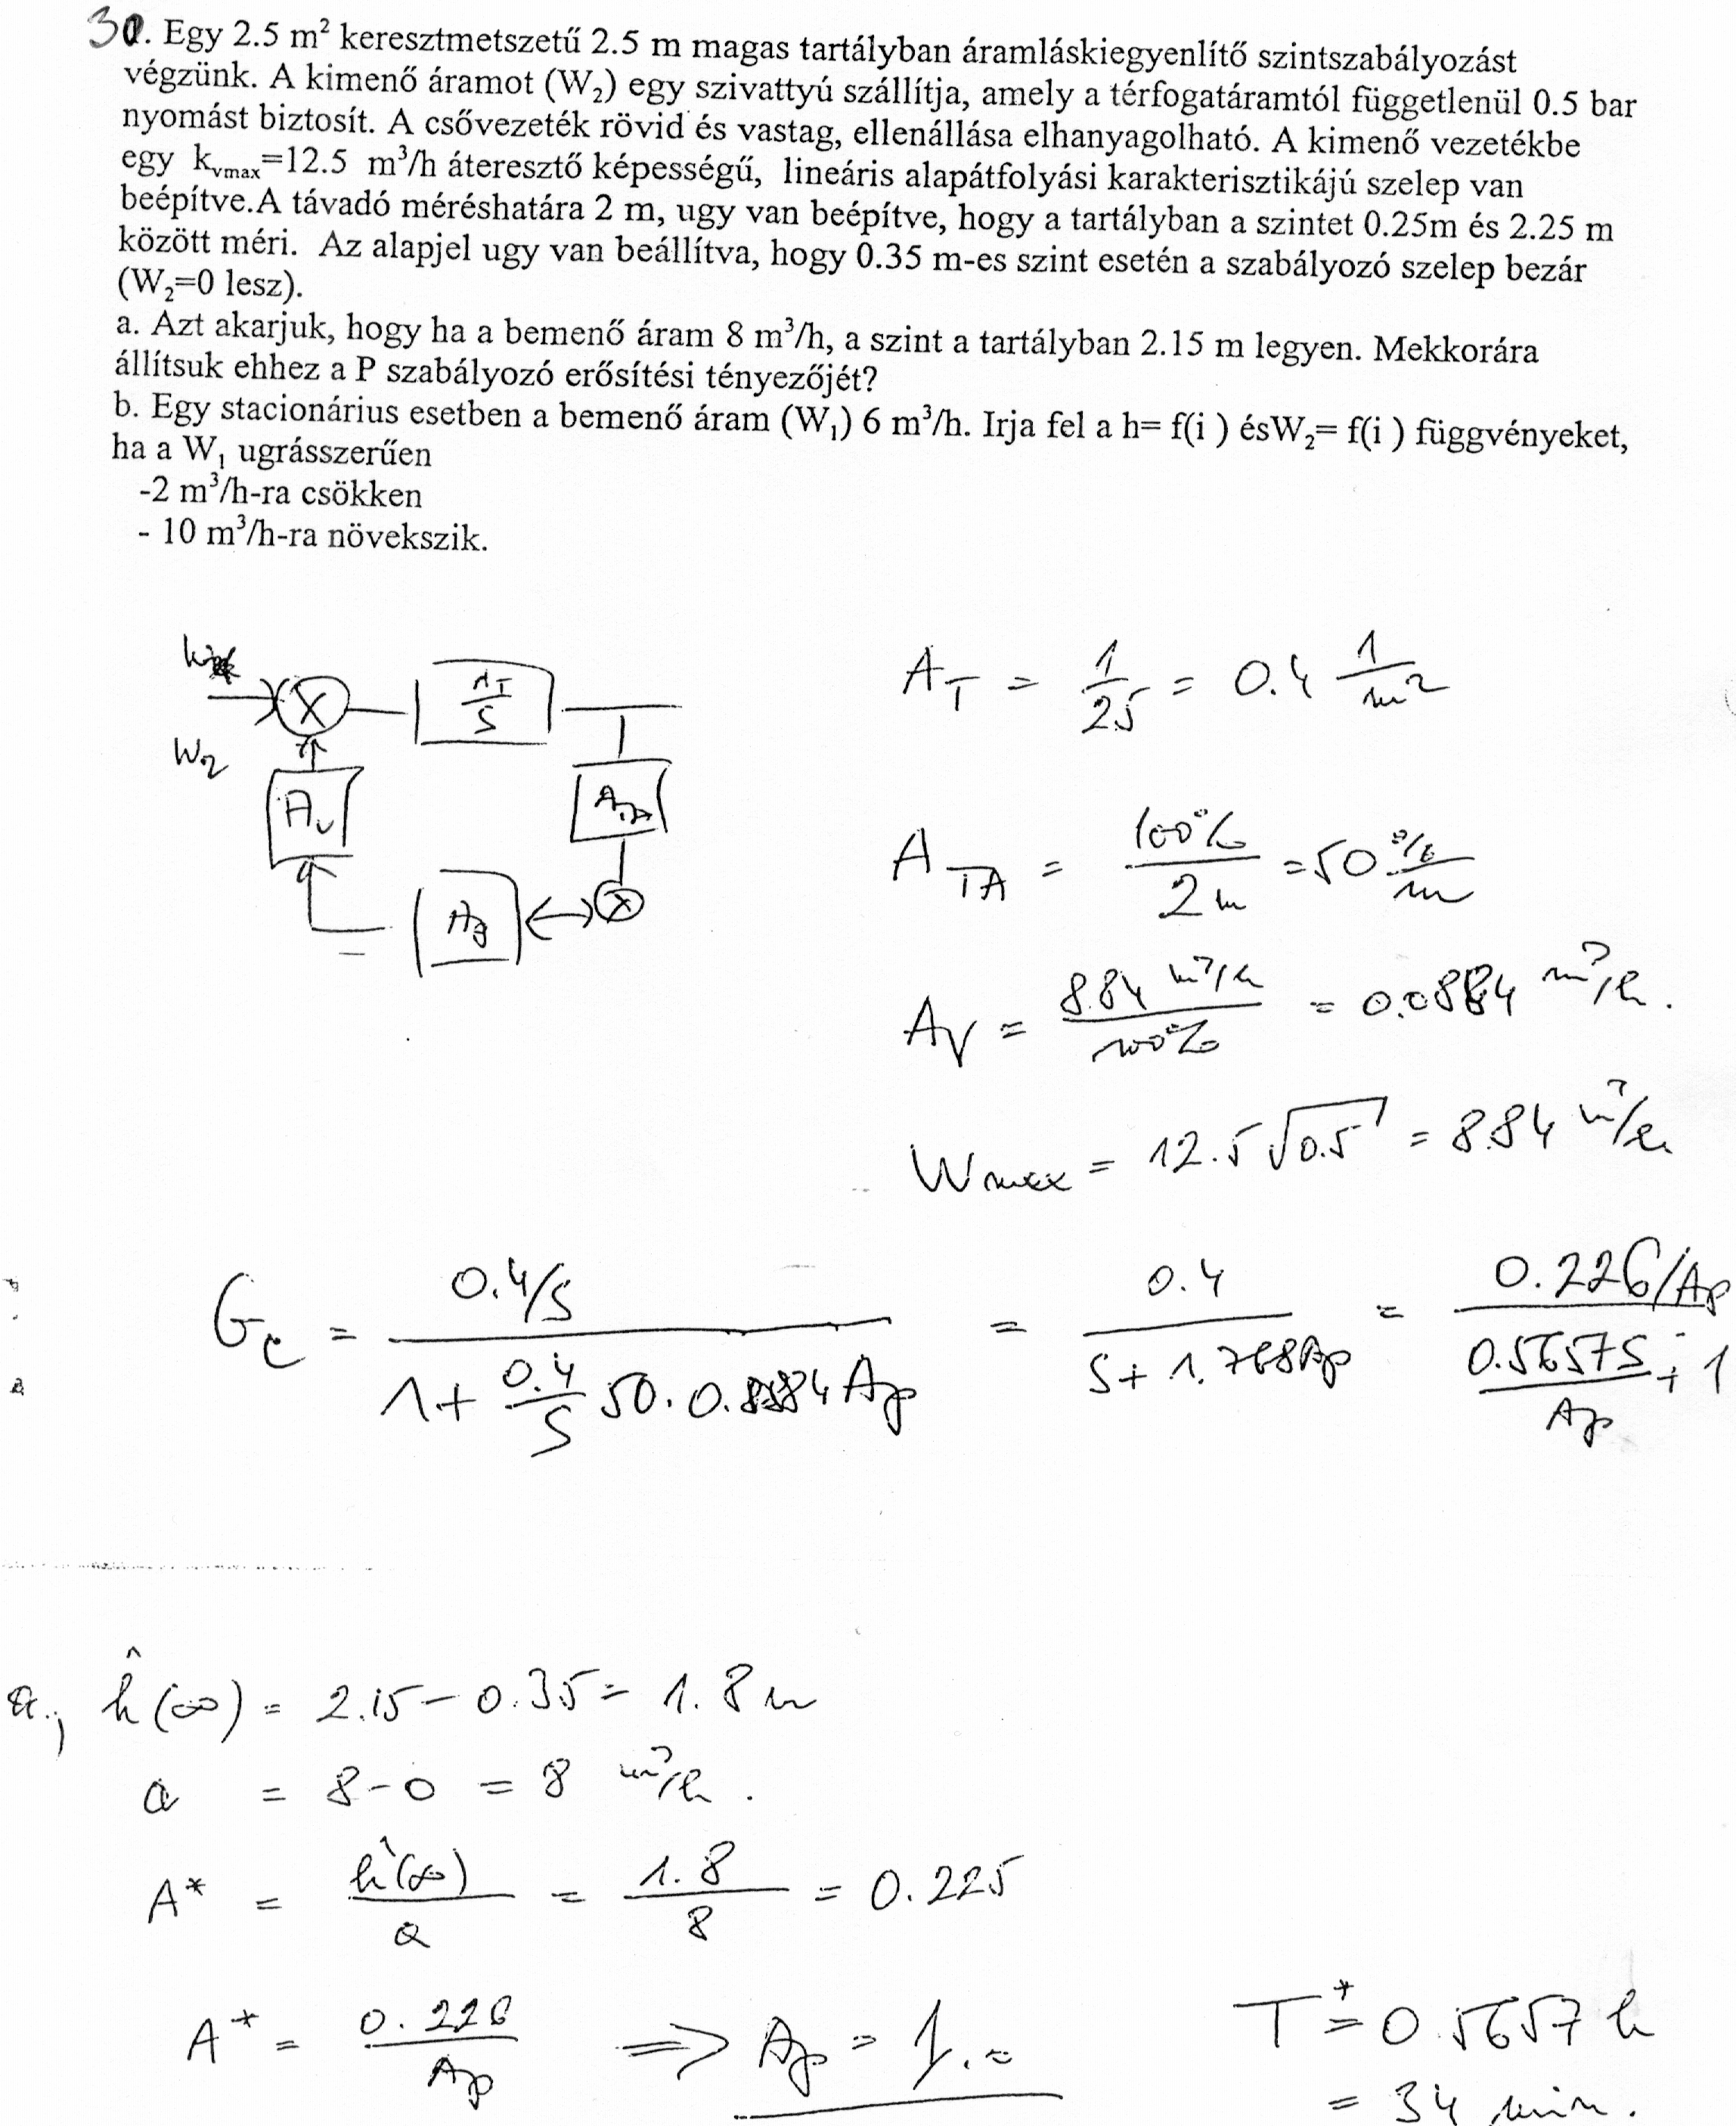 30. Egy 2.5 m² keresztmetszetű 2.5 m magas tartályban áramláskiegyenlítő szintszabályozást
végzünk. A kimenő áramot (W₂) egy szivattyú szállítja, amely a térfogatáramtól függetlenül 0.5 bar
nyomást biztosít. A csővezeték rövid és vastag, ellenállása elhanyagolható. A kimenő vezetékbe
egy kᵥₘₐₓ=12.5 m³/h áteresztő képességű, lineáris alapátfolyási karakterisztikájú szelep van
beépítve.A távadó méréshatára 2 m, ugy van beépítve, hogy a tartályban a szintet 0.25m és 2.25 m
között méri. Az alapjel ugy van beállítva, hogy 0.35 m-es szint esetén a szabályozó szelep bezár
(W₂=0 lesz).
a. Azt akarjuk, hogy ha a bemenő áram 8 m³/h, a szint a tartályban 2.15 m legyen. Mekkorára
állítsuk ehhez a P szabályozó erősítési tényezőjét?
b. Egy stacionárius esetben a bemenő áram (W₁) 6 m³/h. Irja fel a h= f(i ) ésW₂= f(i ) függvényeket,
ha a W₁ ugrásszerűen
-2 m³/h-ra csökken
- 10 m³/h-ra növekszik.
A_T / S
A_T = 1 / 2.5 = 0.4 1/m²
W₂
A_v
A_TA
A_TA = 100% / 2m = 50 %/m
A_p
A_V = 8.84 m³/h / 100% = 0.0884 m³/h.
W max = 12.5 √0.5 = 8.84 m³/h
G_c = 0.4/S / (1 + 0.4/S 50 · 0.0884 A_p) = 0.4 / (S + 1.768 A_p) = 0.226/A_p / (0.5657 S / A_p + 1)
a., ĥ(∞) = 2.15 - 0.35 = 1.8 m
a = 8 - 0 = 8 m³/h.
A* = ĥ(∞) / a = 1.8 / 8 = 0.225
A* = 0.226 / A_p ⇒ A_p = 1.=
T* = 0.5657 h
= 34 min.